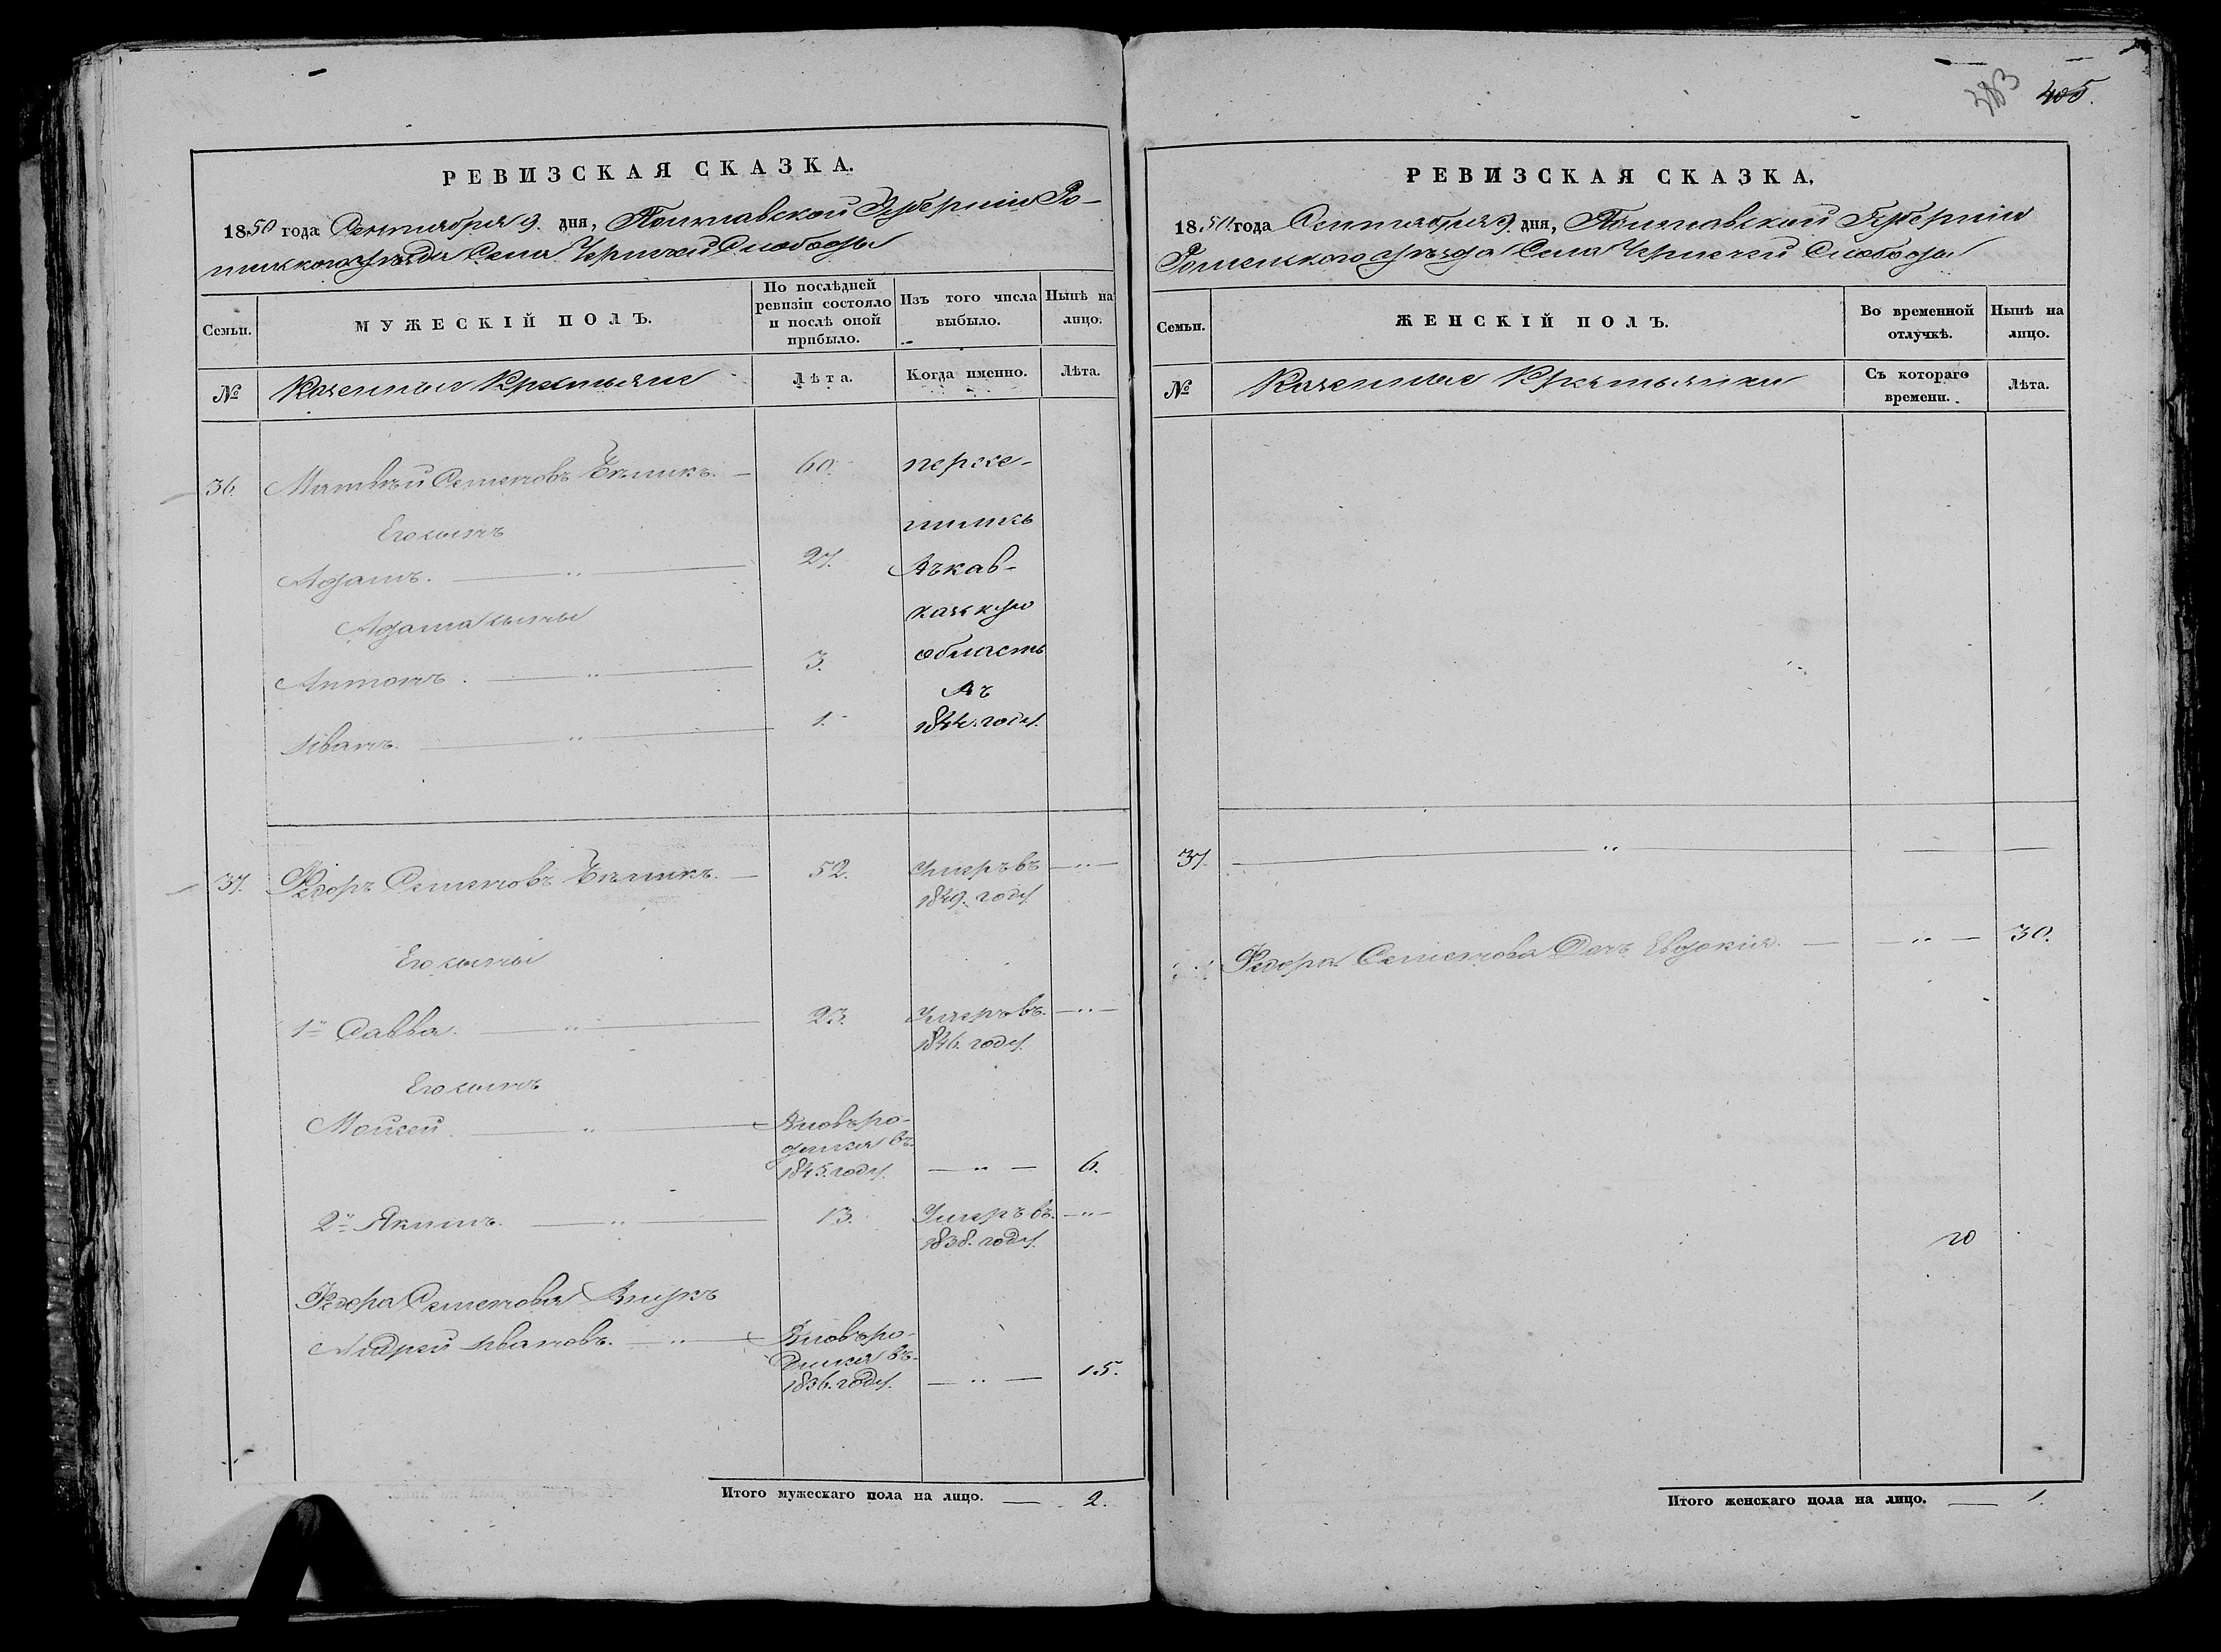 РЕВИЗСКАЯ СКАЗКА.
1850 года Сентября 9. дня, Полтавской Губерніи Ро-
менского уѣзда Села Чернечей Слободы
Семьи.
МУЖЕСКІЙ ПОЛЪ.
По послѣдней
ревизіи состояло
и послѣ оной
прибыло.
Изъ того числа
выбыло.
Нынѣ на
лицо.
№
Казенныи Крестьяне
Лѣта.
Когда именно.
Лѣта.
36. Матвѣй Семеновъ 60. пересе-
Его сынъ лились
Адамъ. 27. Въ кав-
Адама сыны казскую
Антонъ. 3. область
Въ
Иванъ. 1. 1844. году.
37. Федоръ Семеновъ 52. Умеръ въ
1849. году
Его сыны
1й Савва. 23. Умеръ въ
1846. году.
Его сынъ
Моисей Вновь ро-
дился въ
1845. году. 6.
2й Якимъ. 13. Умеръ въ
1838. году.
Федора Семенова Внукъ
Андрей Ивановъ. Вновь ро-
дился въ
1836. году. 15.
Итого мужескаго пола на лицо. 2.
405.
РЕВИЗСКАЯ СКАЗКА.
1850 года Сентября 9. дня, Полтавской Губерніи
Роменского уѣзда Села Чернечей Слободы
Семьи.
ЖЕНСКІЙ ПОЛЪ.
Во временной
отлучкѣ.
Нынѣ на
лицо.
№
Казенные Крестьянки
Съ котораго
времени.
Лѣта.
37.
Федора Семенова Дочь Евдокія. 30.
Итого женскаго пола на лицо. 1.